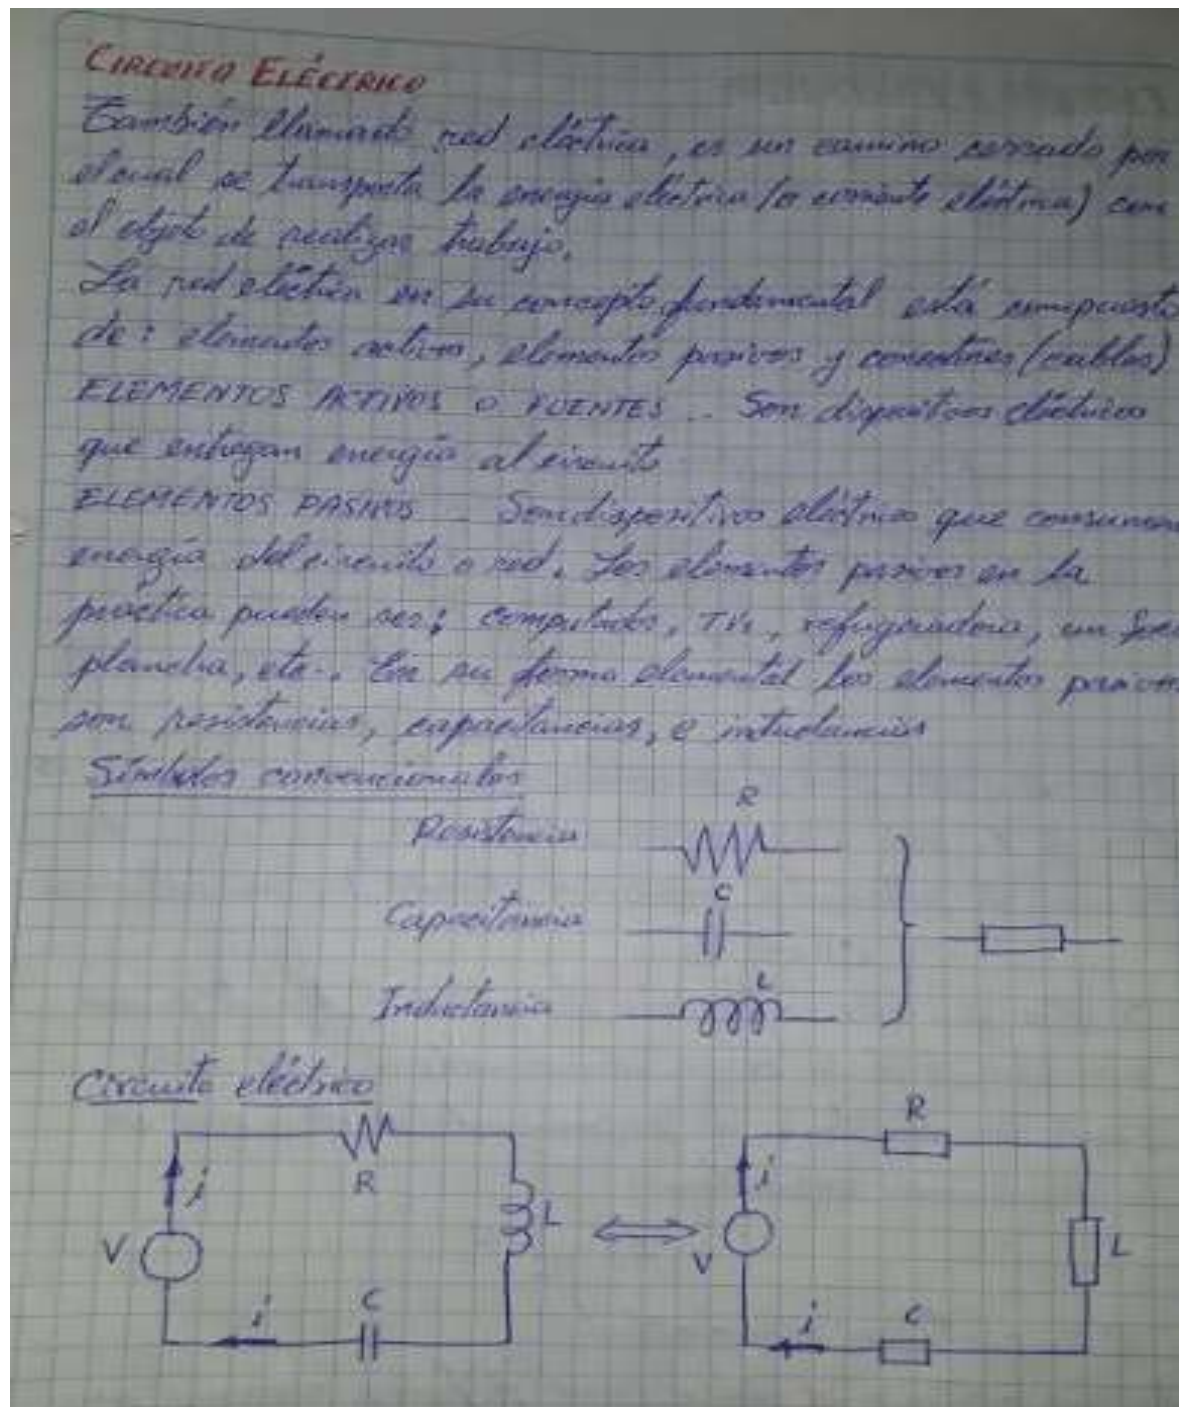 CIRCUITO ELÉCTRICO
También llamado red eléctrica, es un camino cerrado por
el cual se transporta la energía eléctrica (o corriente eléctrica) con
el objeto de realizar trabajo.
La red eléctrica en su concepto fundamental está compuesta
de: elementos activos, elementos pasivos y conectores (cables)
ELEMENTOS ACTIVOS O FUENTES .. Son dispositivos eléctricos
que entregan energía al circuito
ELEMENTOS PASIVOS Son dispositivos eléctricos que consumen
energía del circuito o red. Los elementos pasivos en la
práctica pueden ser: TVs, refrigeradora, un
plancha, etc.. En su forma elemental los elementos pasivos
son resistencias, capacitancias, e inductancias
Símbolos convencionales
R
Resistencia
C
Capacitancia
L
Inductancia
Circuito eléctrico
R
i
L
V
C
i
R
i
L
V
C
i